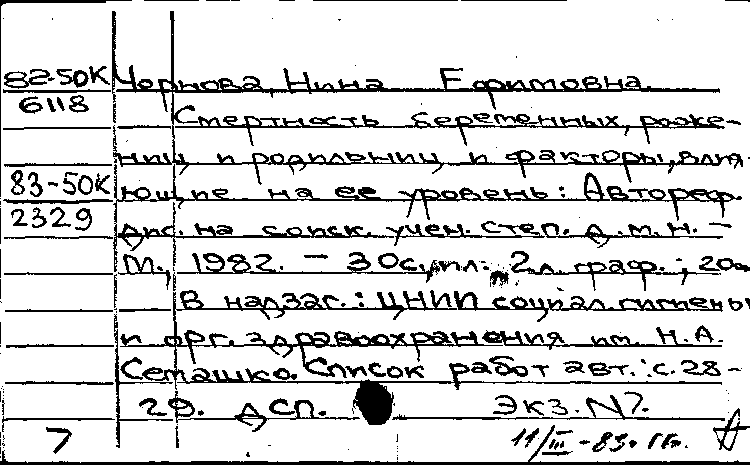 82-50К Чернова, Нина Ефимовна.
6118
Смертность беременных, роже-
ниц и родильниц и факторы, влия-
83-50К ющие на ее уровень: Автореф.
2329 дис. на соиск. учен. степ. д.м.н. -
М., 1982. - 30 с., ил.: 2 л. граф.; 20 см
В надзаг.: ЦНИИ социал. гигиены
и орг. здравоохранения им. Н.А.
Семашко. Список работ авт.: с. 28-
29. ДСП. Экз. N7.
7 11/III-83г.